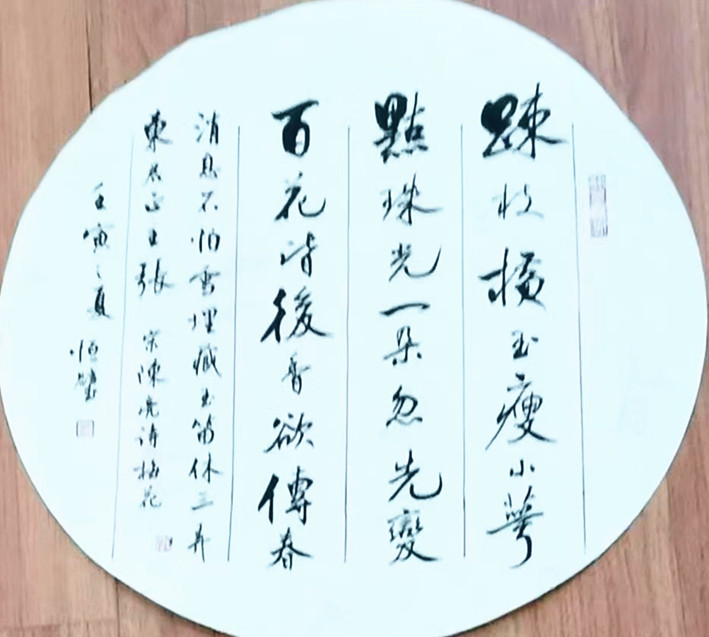 踈枝橫玉瘦小萼
點珠光一朵忽先變
百花皆後香欲傳春
消息不怕雪埋藏玉笛休三弄
東君正主張 宋陳亮詩梅花
壬寅之夏
恒